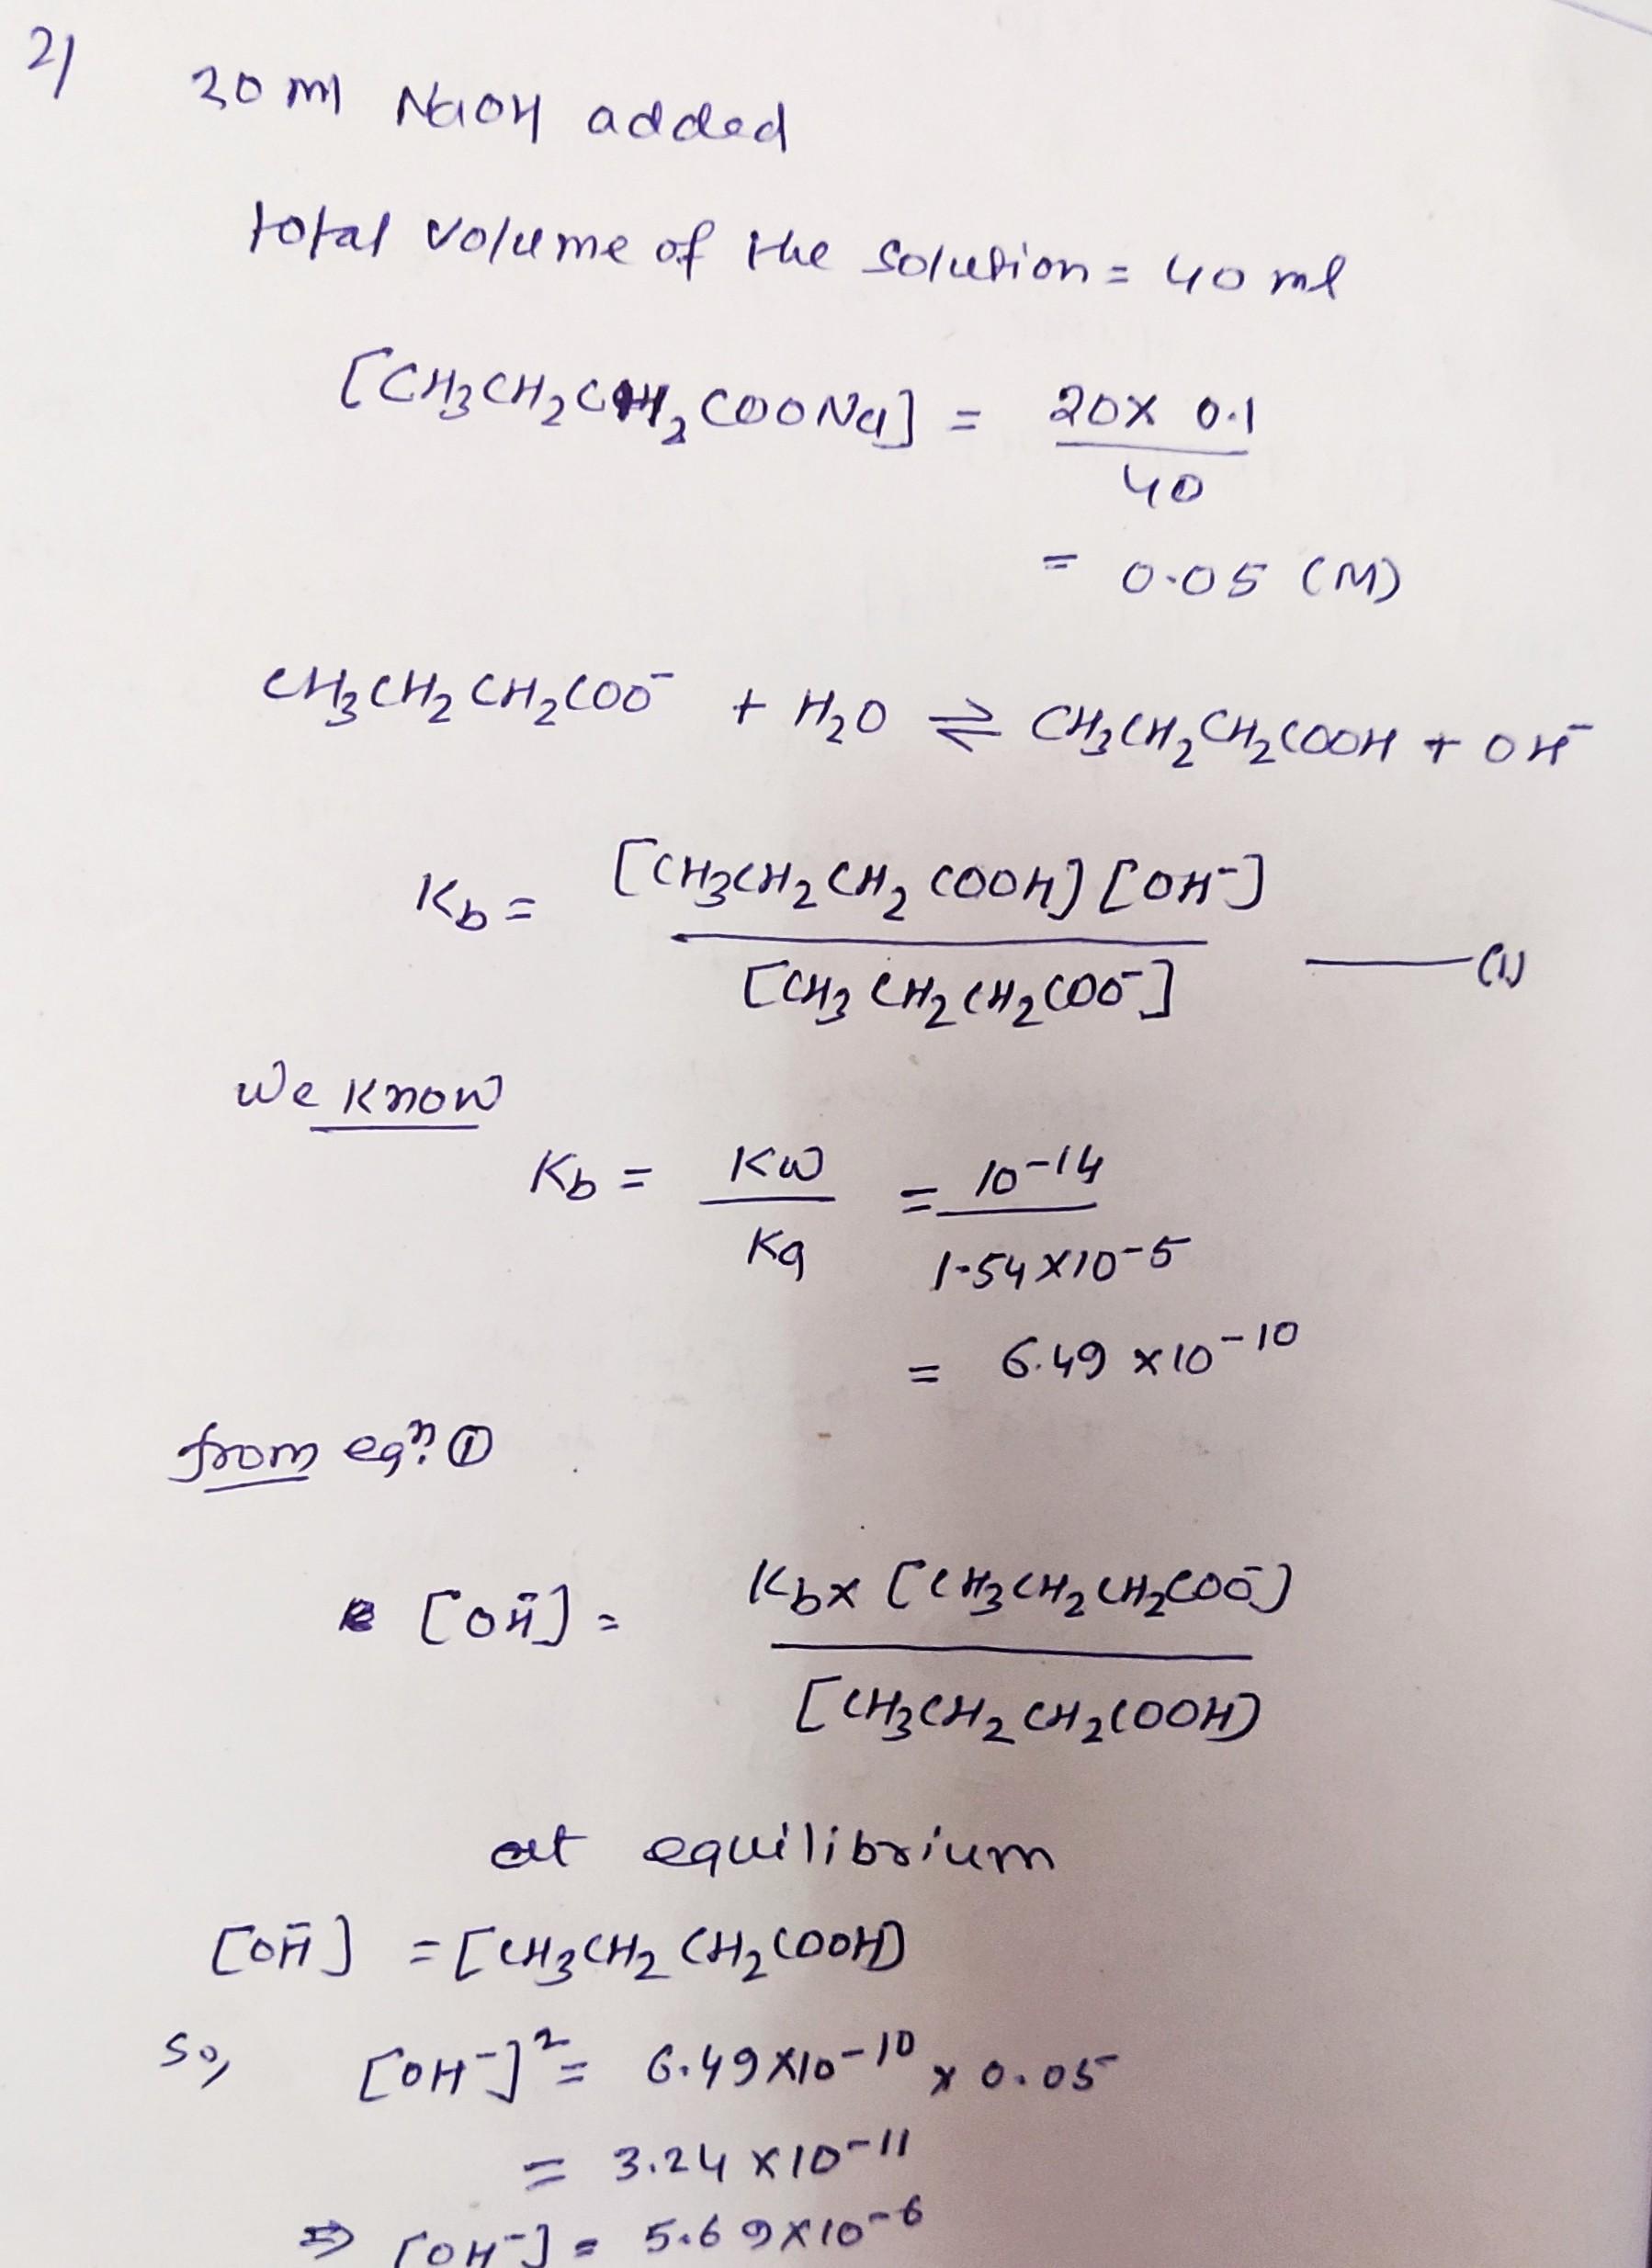 2)
20 ml NaOH added
total volume of the solution = 40 ml
[CH₃CH₂CH₂COONa] = 20 x 0.1 / 40
= 0.05 (M)
CH₃CH₂CH₂COO⁻ + H₂O ⇌ CH₃CH₂CH₂COOH + OH⁻
Kb = [CH₃CH₂CH₂COOH] [OH⁻] / [CH₃CH₂CH₂COO⁻] —— (1)
We know
Kb = Kw / Ka = 10⁻¹⁴ / 1.54 x 10⁻⁵
= 6.49 x 10⁻¹⁰
from eqⁿ. ①
[OH⁻] = Kb x [CH₃CH₂CH₂COO⁻] / [CH₃CH₂CH₂COOH]
at equilibrium
[OH⁻] = [CH₃CH₂CH₂COOH]
So, [OH⁻]² = 6.49 x 10⁻¹⁰ x 0.05
= 3.24 x 10⁻¹¹
⇒ [OH⁻] = 5.69 x 10⁻⁶